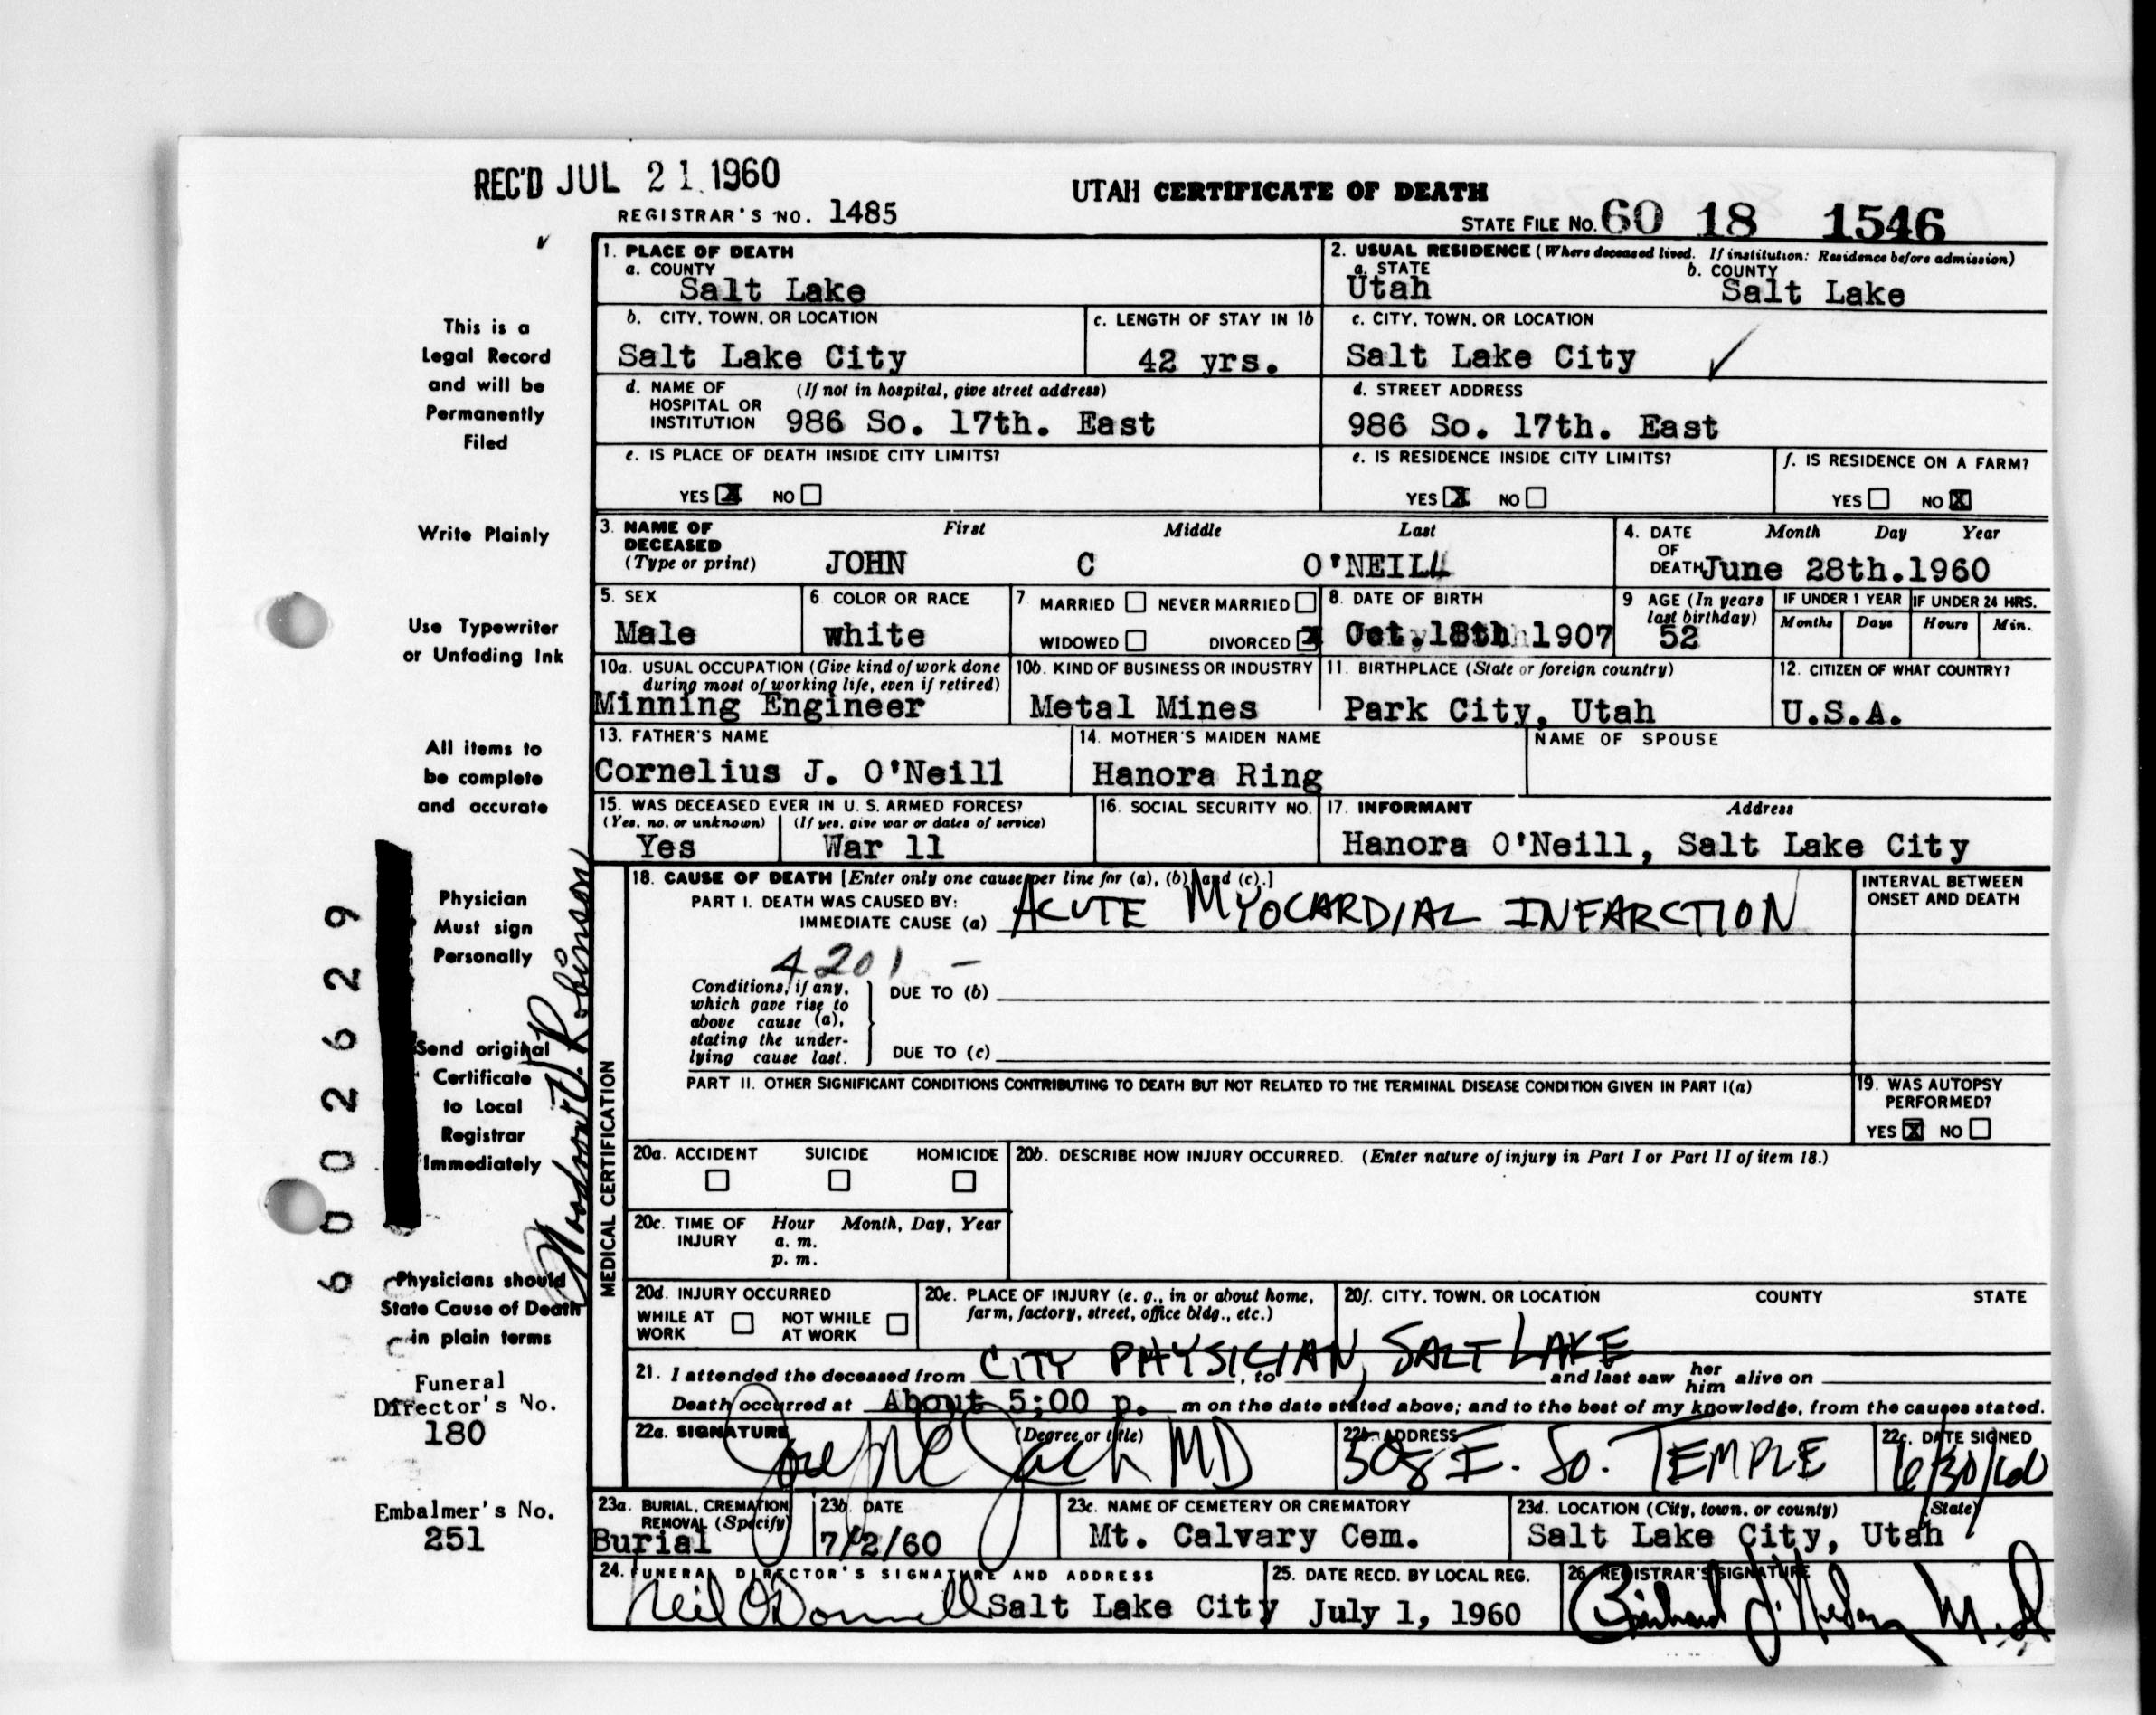 REC'D JUL 21 1960
UTAH CERTIFICATE OF DEATH
REGISTRAR'S NO. 1485
STATE FILE NO. 60 18 1546
1. PLACE OF DEATH
a. COUNTY
Salt Lake
2. USUAL RESIDENCE (Where deceased lived. If institution: Residence before admission)
a. STATE
Utah
b. COUNTY
Salt Lake
b. CITY, TOWN, OR LOCATION
Salt Lake City
c. LENGTH OF STAY IN 1b
42 yrs.
c. CITY, TOWN, OR LOCATION
Salt Lake City
d. NAME OF HOSPITAL OR INSTITUTION (If not in hospital, give street address)
986 So. 17th. East
d. STREET ADDRESS
986 So. 17th. East
e. IS PLACE OF DEATH INSIDE CITY LIMITS?
YES X NO
e. IS RESIDENCE INSIDE CITY LIMITS?
YES X NO
f. IS RESIDENCE ON A FARM?
YES NO X
3. NAME OF DECEASED (Type or print)
First Middle Last
JOHN C O'NEILL
4. DATE OF DEATH
Month Day Year
June 28th.1960
5. SEX
Male
6. COLOR OR RACE
white
7. MARRIED NEVER MARRIED
WIDOWED DIVORCED X
8. DATE OF BIRTH
Oct.18th 1907
9 AGE (In years last birthday)
52
IF UNDER 1 YEAR
Months Days
IF UNDER 24 HRS.
Hours Min.
10a. USUAL OCCUPATION (Give kind of work done during most of working life, even if retired)
Minning Engineer
10b. KIND OF BUSINESS OR INDUSTRY
Metal Mines
11. BIRTHPLACE (State or foreign country)
Park City, Utah
12. CITIZEN OF WHAT COUNTRY?
U.S.A.
13. FATHER'S NAME
Cornelius J. O'Neill
14. MOTHER'S MAIDEN NAME
Hanora Ring
NAME OF SPOUSE
15. WAS DECEASED EVER IN U. S. ARMED FORCES?
(Yes, no, or unknown) (If yes, give war or dates of service)
Yes War 11
16. SOCIAL SECURITY NO.
17. INFORMANT Address
Hanora O'Neill, Salt Lake City
MEDICAL CERTIFICATION
18. CAUSE OF DEATH [Enter only one cause per line for (a), (b), and (c).]
PART I. DEATH WAS CAUSED BY:
IMMEDIATE CAUSE (a) ACUTE MYOCARDIAL INFARCTION
INTERVAL BETWEEN ONSET AND DEATH
4201 -
Conditions, if any, which gave rise to above cause (a), stating the underlying cause last.
DUE TO (b)
DUE TO (c)
PART II. OTHER SIGNIFICANT CONDITIONS CONTRIBUTING TO DEATH BUT NOT RELATED TO THE TERMINAL DISEASE CONDITION GIVEN IN PART I(a)
19. WAS AUTOPSY PERFORMED?
YES X NO
20a. ACCIDENT SUICIDE HOMICIDE
20b. DESCRIBE HOW INJURY OCCURRED. (Enter nature of injury in Part I or Part II of item 18.)
20c. TIME OF INJURY Hour Month, Day, Year
a. m.
p. m.
20d. INJURY OCCURRED
WHILE AT WORK NOT WHILE AT WORK
20e. PLACE OF INJURY (e. g., in or about home, farm, factory, street, office bldg., etc.)
20f. CITY, TOWN, OR LOCATION COUNTY STATE
21. I attended the deceased from CITY PHYSICIAN, SALT LAKE, to and last saw her him alive on
Death occurred at About 5;00 p. m on the date stated above; and to the best of my knowledge, from the causes stated.
22a. SIGNATURE (Degree or title)
MD
22b. ADDRESS
508 E. So. TEMPLE
22c. DATE SIGNED
6/30/60
23a. BURIAL, CREMATION, REMOVAL (Specify)
Burial
23b. DATE
7/2/60
23c. NAME OF CEMETERY OR CREMATORY
Mt. Calvary Cem.
23d. LOCATION (City, town, or county) (State)
Salt Lake City, Utah
24. FUNERAL DIRECTOR'S SIGNATURE AND ADDRESS
Neil O'Donnell Salt Lake City
25. DATE RECD. BY LOCAL REG.
July 1, 1960
26. REGISTRAR'S SIGNATURE
This is a
Legal Record
and will be
Permanently
Filed
Write Plainly
Use Typewriter
or Unfading Ink
All items to
be complete
and accurate
Physician
Must sign
Personally
Send original
Certificate
to Local
Registrar
Immediately
Physicians should
State Cause of Death
in plain terms
Funeral
Director's No.
180
Embalmer's No.
251
6002629
Robinson